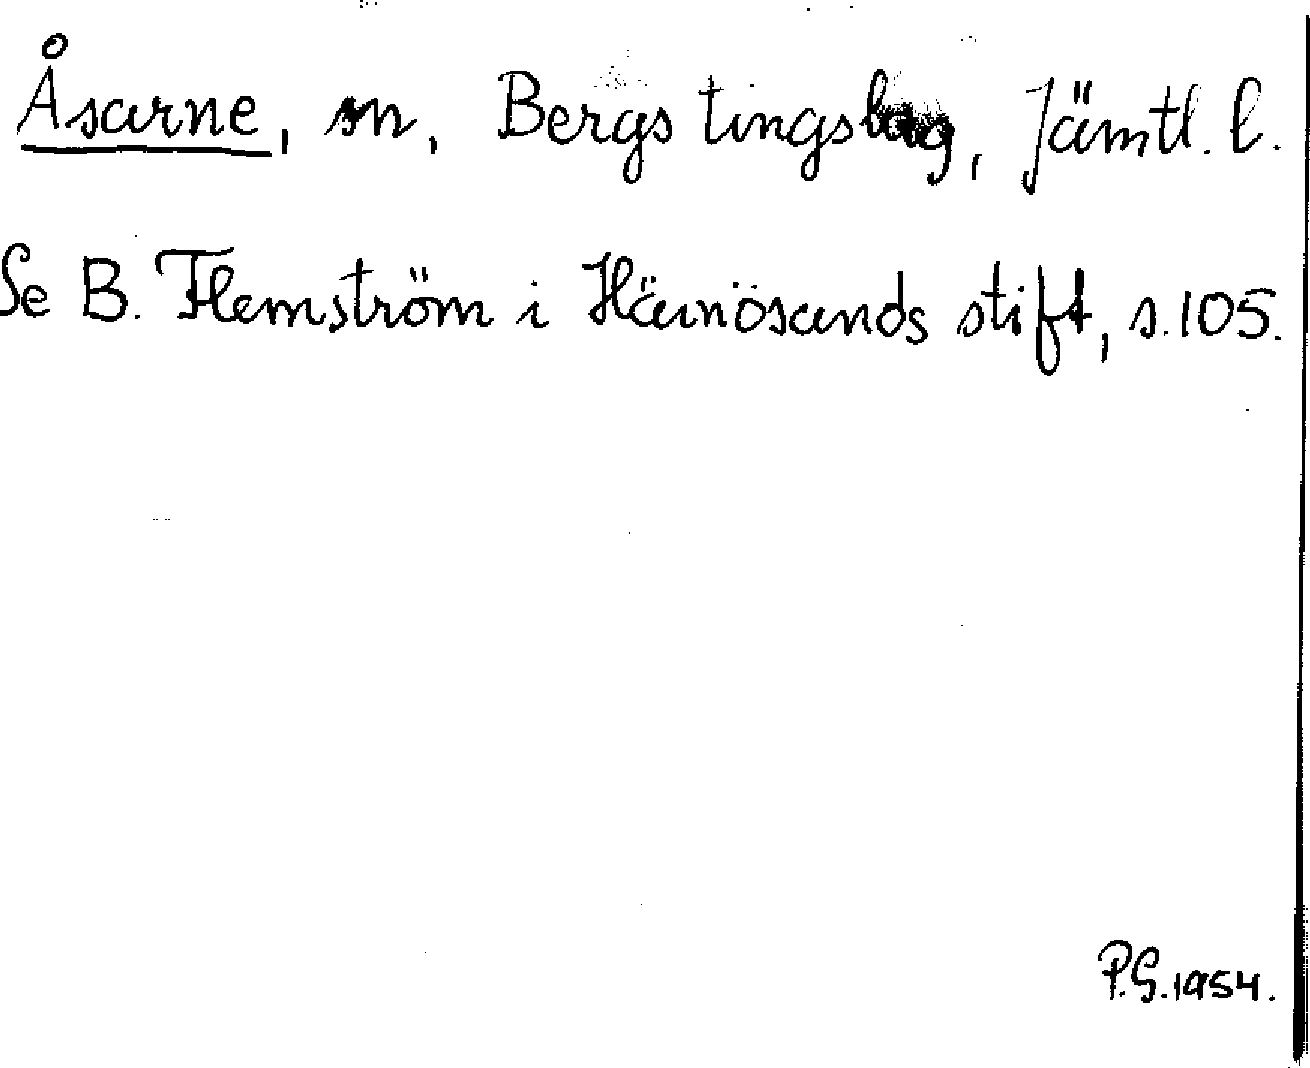 Åsarne, sn, Bergs tingslag, Jämtl. l.
Se B. Flemström i Härnösands stift, s. 105.
P.G. 1954.